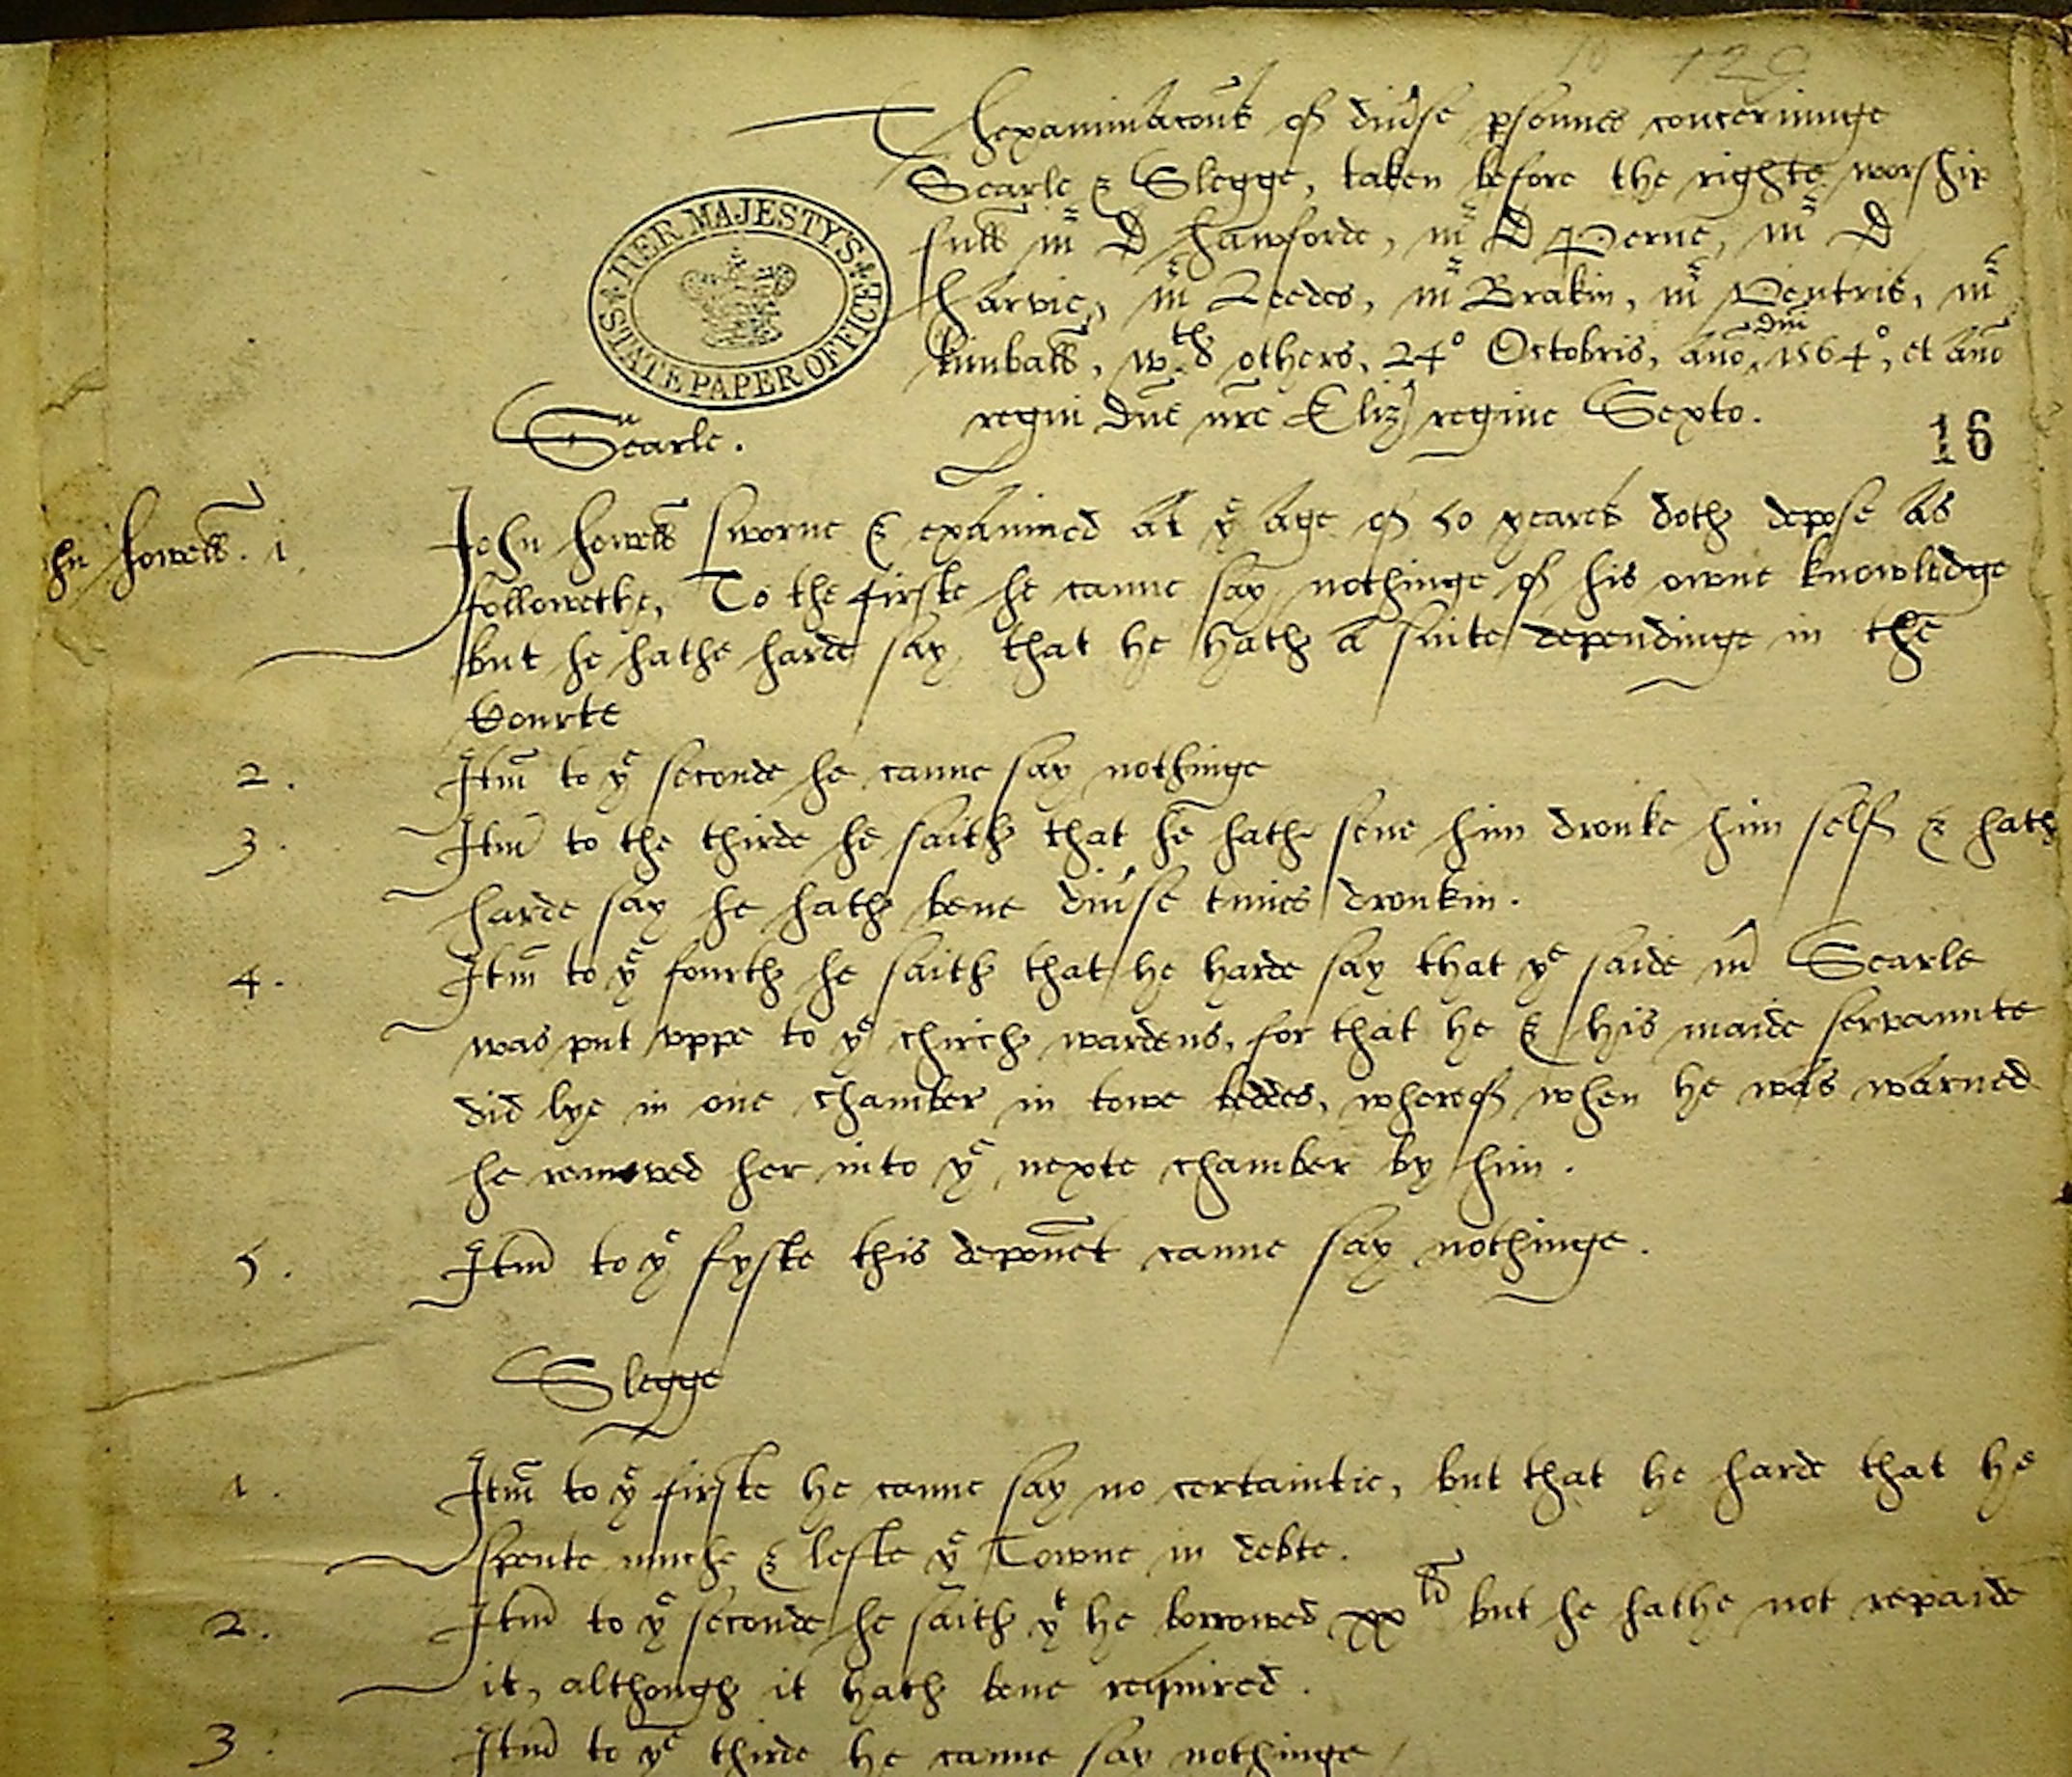 129
Thexaminacons of diu'se psonnes concerninge
Searle & Slegge, taken before the righte worship
full mr D Hawforde, mr D Perne, mr D
Harvie, mr Leedes, mr Brakin, mr Ventris, mr
Kimball, wth others, 24o Octobris, ano dni 1564o, et ano
regni dne nre Eliz regine Sexto.
HER MAJESTY'S STATE PAPER OFFICE
16
Searle.
hn Howell. 1.
John Howell sworne & examined at ye age of 50 yeares doth depose as
followethe, To the firste he canne say nothinge of his owne knowledge
but he hathe harde say that he hath a suite dependinge in the
Courte
2. Itm to ye seconde he canne say nothinge
3. Itm to the thirde he saith that he hath sene him dronke him self & hath
harde say he hath bene diu'se times dronkin.
4. Itm to ye fourth he saith that he harde say that ye saide mr Searle
was put vppe to ye chirch wardens, for that he & his maide servaunte
did lye in one chamber in towe beddes, whereof when he was warned
he removed her into ye nexte chamber by him.
5. Itm to ye fyfte this deponet canne say nothinge.
Slegge
1. Itm to ye firste he canne say no certaintie, but that he harde that he
spente muche & lefte ye Towne in debte.
2. Itm to ye seconde he saith yt he borrowed xx li but he hathe not repaide
it, although it hath bene required.
3. Itm to ye thirde he canne say nothinge